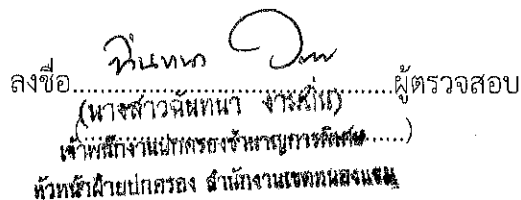 ลงชื่อ..........................................ผู้ตรวจสอบ
(นางสาวฉันทนา
เจ้าพนักงานปกครองชำนาญการพิเศษ
หัวหน้าฝ่ายปกครอง สำนักงานเขตหนองแขม